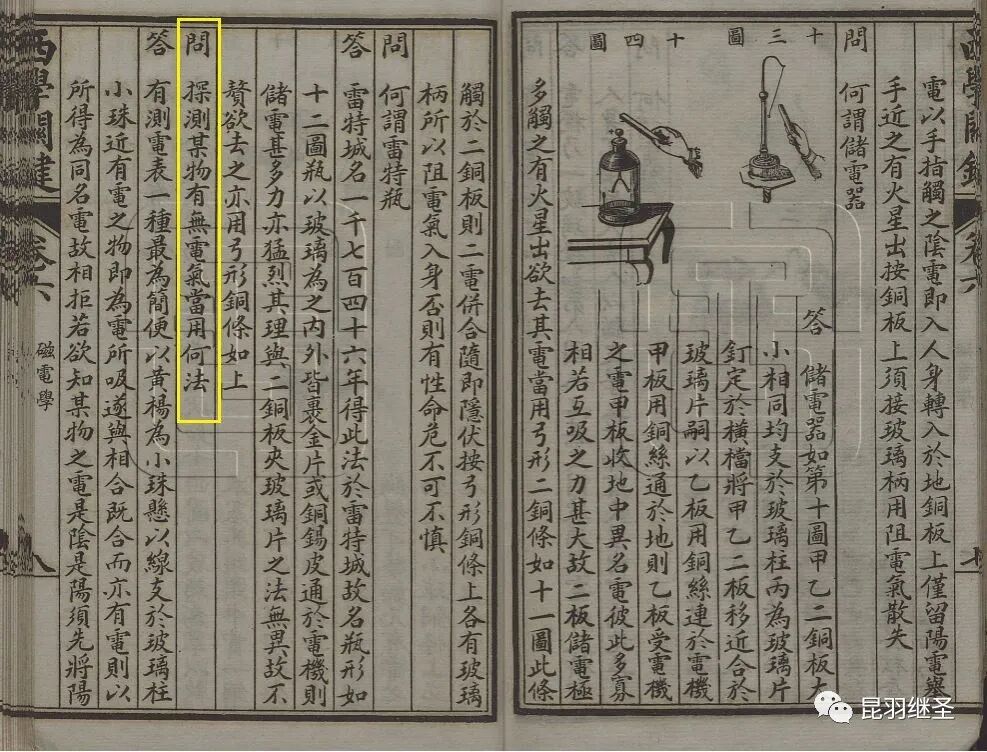 電以手指觸之陰電即入人身轉入於地銅板上僅留陽電舉
手近之有火星出按銅板上須接玻璃柄用阻電氣散失
問
何謂儲電器
十三圖
十四圖
答
儲電器如第十圖甲乙二銅板大
小相同均支於玻璃柱丙為玻璃片
釘定於橫檔將甲乙二板移近合於
玻璃片嗣以乙板用銅絲連於電機
甲板用銅絲通於地則乙板受電機
之電甲板收地中異名電彼此多寡
相若互吸之力甚大故二板儲電極
多觸之有火星出欲去其電當用弓形二銅條如十一圖此條
觸於二銅板則二電併合隨即隱伏按弓形銅條上各有玻璃
柄所以阻電氣入身否則有性命危不可不慎
問
何謂雷特瓶
答
雷特城名一千七百四十六年得此法於雷特城故名瓶形如
十二圖瓶以玻璃為之內外皆裹金片或銅錫皮通於電機則
儲電甚多力亦猛烈其理與二銅板夾玻璃片之法無異故不
贅欲去之亦用弓形銅條如上
問
探測某物有無電氣當用何法
答
有測電表一種最為簡便以黃楊為小珠懸以線支於玻璃柱
小珠近有電之物即為電所吸遂與相合既合而亦有電則以
所得為同名電故相拒若欲知某物之電是陰是陽須先將陽
西學關鍵
卷六
磁電學
八
昆羽继圣